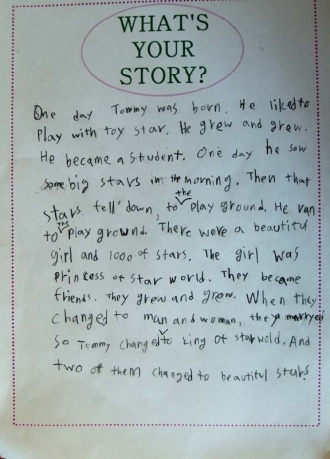 WHAT'S
YOUR
STORY?
One day Tommy was born. He liked to
Play with toy star. He grew and grew.
He became a student. One day he sow
some big stars in the morning. Then that
stars fell down, to the play ground. He ran
to the play grownd. There were a beautiful
girl and 1000 of stars. The girl was
princess of star world. They became
friends. They grew and grew. When they
changed to man and woman, they marryed
So Tommy changed to king of star wold. And
two of them changed to beautiful stars